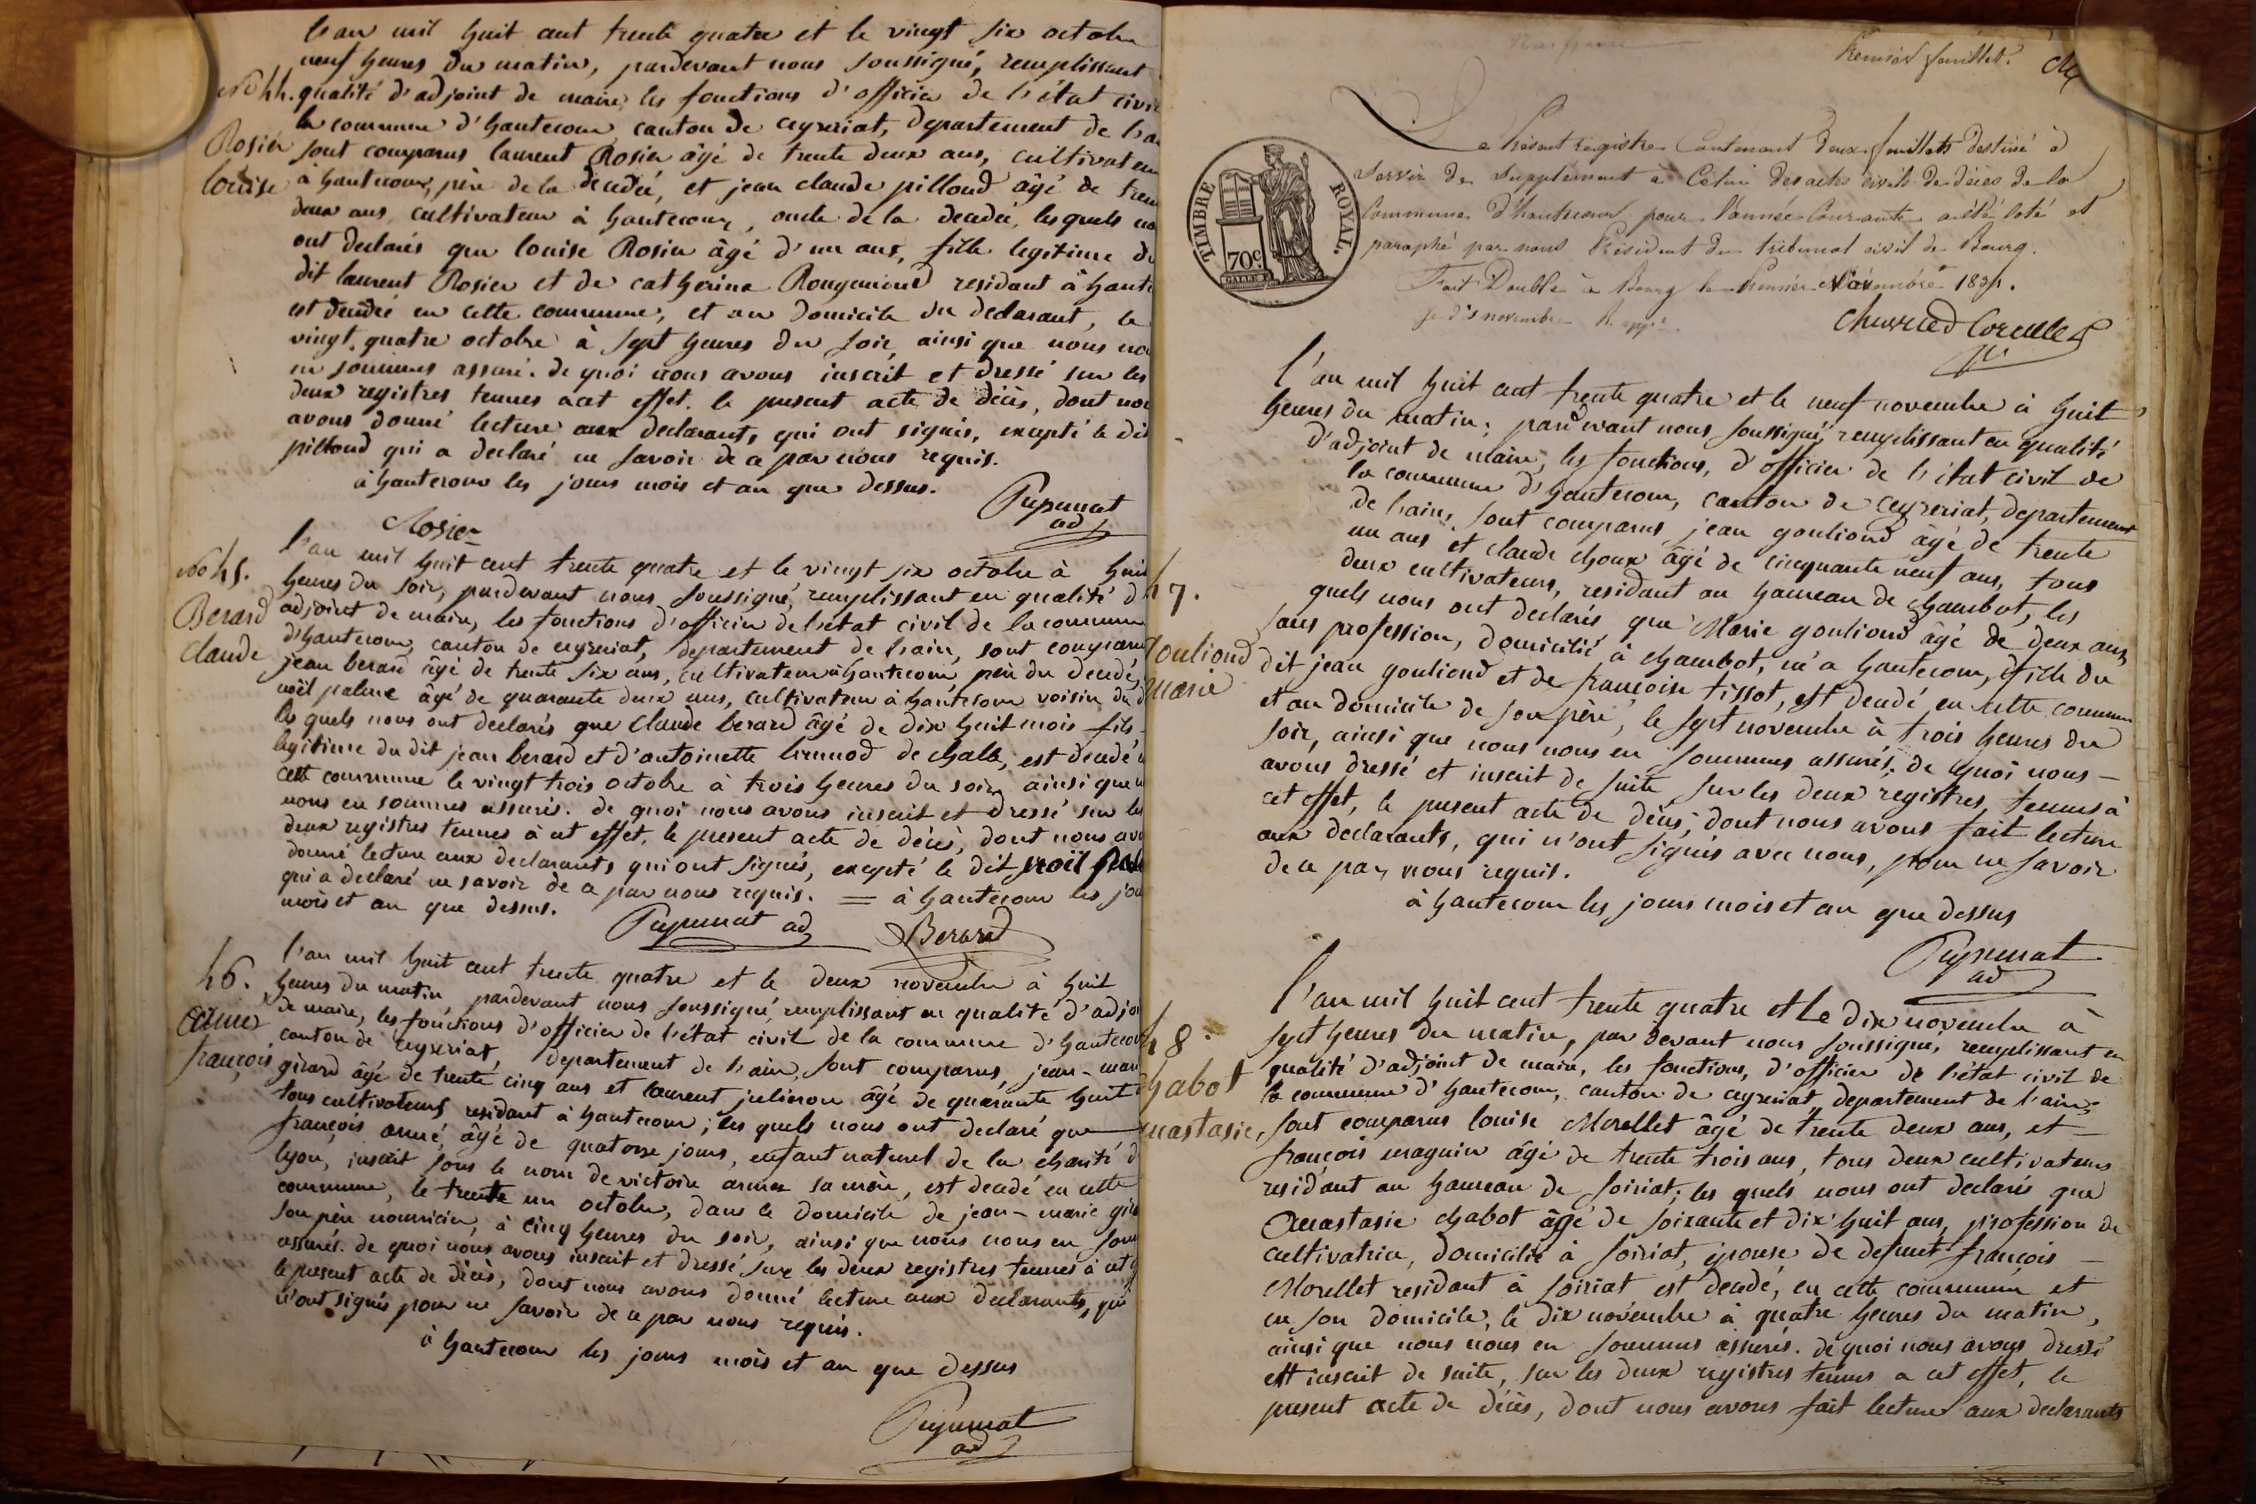 L'an mil huit cent trente quatre et le vingt six octobre
neuf heures du matin, pardevant nous soussigné, remplissant
No 44. qualité d'adjoint de maire, les fonctions d'officier de l'état civil
la commune d'hautecour, canton de ceyzeriat, departement de l'ain
Rosier sont comparus laurent Rosier âgé de trente deux ans, cultivateur
louise à hautecour, père de la decedée, et jean claude pilloud âgé de trente
deux ans, cultivateur à hautecour, oncle de la decedée, les quels nous
ont declarés que louise Rosier âgé d'un ans, fille legitime du
dit laurent Rosier et de catherine Rougemond residant à haute
est decedée en cette commune, et au domicile du declarant, le
vingt quatre octobre à sept heures du soir, ainsi que nous nous
en sommes assuré. de quoi nous avons inscrit et dressé sur les
deux registres tenues a cet effet. le present acte de décès, dont nous
avons donné lecture aux declarants, qui ont signés, excepté le dit
pilloud qui a declaré ne savoir de ce par nous requis.
à hautecour les jours mois et an que dessus.
Rosier
Pupunat
ad
No 45. L'an mil huit cent trente quatre et le vingt six octobre à huit
heures du soir, pardevant nous soussigné, remplissant en qualité d
Berard adjoint de maire, les fonctions d'officier de l'etat civil de la commune
Claude d'hautecour, canton de ceyzeriat, departement de l'ain, sont comparus
jean berard âgé de trente six ans, cultivateur à hautecour père du decedé,
noël palme âgé de quarante deux ans, cultivateur à hautecour voisin du d
les quels nous ont declarés que claude berard âgé de dix huit mois fils
legitime du dit jean berard et d'antoinette de chale, est decedé
cette commune le vingt trois octobre à trois heures du soir ainsi que
nous en sommes assurés. de quoi nous avons inscrit et dressé sur les
deux registres tenues à cet effet, le present acte de décès, dont nous avo
donné lecture aux declarants, qui ont signés, excepté le dit noël
qui a declaré ne savoir de ce par nous requis. = à hautecour les jou
mois et an que dessus.
Pupunat ad Berard
46. L'an mil huit cent trente quatre et le deux novembre à huit
heures du matin, pardevant nous soussigné, remplissant en qualité d'adjoi
de maire, les fonctions d'officier de l'état civil de la commune d'hautecour
françois canton de ceyzeriat, departement de l'ain, sont comparus, jean-marie
girard âgé de trente cinq ans et laurent julieron âgé de quarante huit
tous cultivateurs residant à hautecour; les quels nous ont declaré que
françois âgé de quatorze jours, enfant naturel de la charité d
lyon, inscrit sous le nom de victoire sa mère, est decedé en cette
commune, le trente un octobre, dans le domicile de jean-marie gir
son père nourricier, à cinq heures du soir, ainsi que nous nous en som
assurés. de quoi nous avons inscrit et dressé sur les deux registres tenues à cet
le present acte de décès, dont nous avons donné lecture aux declarants, qui
n'ont signés pour ne savoir de ce par nous requis.
à hautecour les jours mois et an que dessus
Pupunat
ad
Premier feuillet.
Le Présent registre contenant deux feuillets destiné à
servir de supplément à celui des actes civils de décès de la
Commune d'hautecour pour l'année courante a été coté et
paraphé par nous Président du tribunal civil de Bourg.
Fait Double à Bourg le Premier Novembre 1834.
TIMBRE ROYAL.
70c
L'an mil huit cent trente quatre et le neuf novembre à huit
heures du matin; pardevant nous soussigné, remplissant en qualité
d'adjoint de maire, les fonctions, d'officier de l'état civil de
la commune d'hautecour, canton de ceyzeriat, departement
de l'ain, sont comparus jean gouliond âgé de trente
un ans et claude choux âgé de cinquante neuf ans, tous
47. deux cultivateurs, residant au hameau de chambot, les
quels nous ont declarés que Marie gouliond âgé de deux ans,
Gouliond sans profession, domicilié à chambot, né a hautecour, fille du
Marie dit jean gouliond et de françoise tissot, est decedé en cette commune
et au domicile de son père, le sept novembre à trois heures du
soir, ainsi que nous nous en sommes assurés; de quoi nous -
avons dressé et inscrit de suite sur les deux registres, tenus à
cet effet, le present acte de décès, dont nous avons fait lecture
aux declarants, qui n'ont signés avec nous, pour ne savoir
de ce par nous requis.
à hautecour les jours mois et an que dessus
Pupunat
ad
L'an mil huit cent trente quatre et Le dix novembre à
48. sept heures du matin, par devant nous soussigné, remplissant en
qualité d'adjoint de maire, les fonctions, d'officier de l'état civil de
Chabot la commune d'hautecour, canton de ceyzeriat, departement de l'ain,
anastasie, sont comparus louise Morellet âgé de trente deux ans, et -
françois maguin âgé de trente trois ans, tous deux cultivateurs
residant au hameau de soiriat; les quels nous ont declarés que
Anastasie chabot âgé de soixante et dix huit ans, profession de
cultivatrice, domicilié à soiriat, épouse de defunt françois -
Morellet residant à soiriat est decedé, en cette commune et
en son domicile, le dix novembre à quatre heures du matin,
ainsi que nous nous en sommes assurés. de quoi nous avons dressé
et inscrit de suite, sur les deux registres tenues a cet effet, le
present acte de décès, dont nous avons fait lecture aux declarants